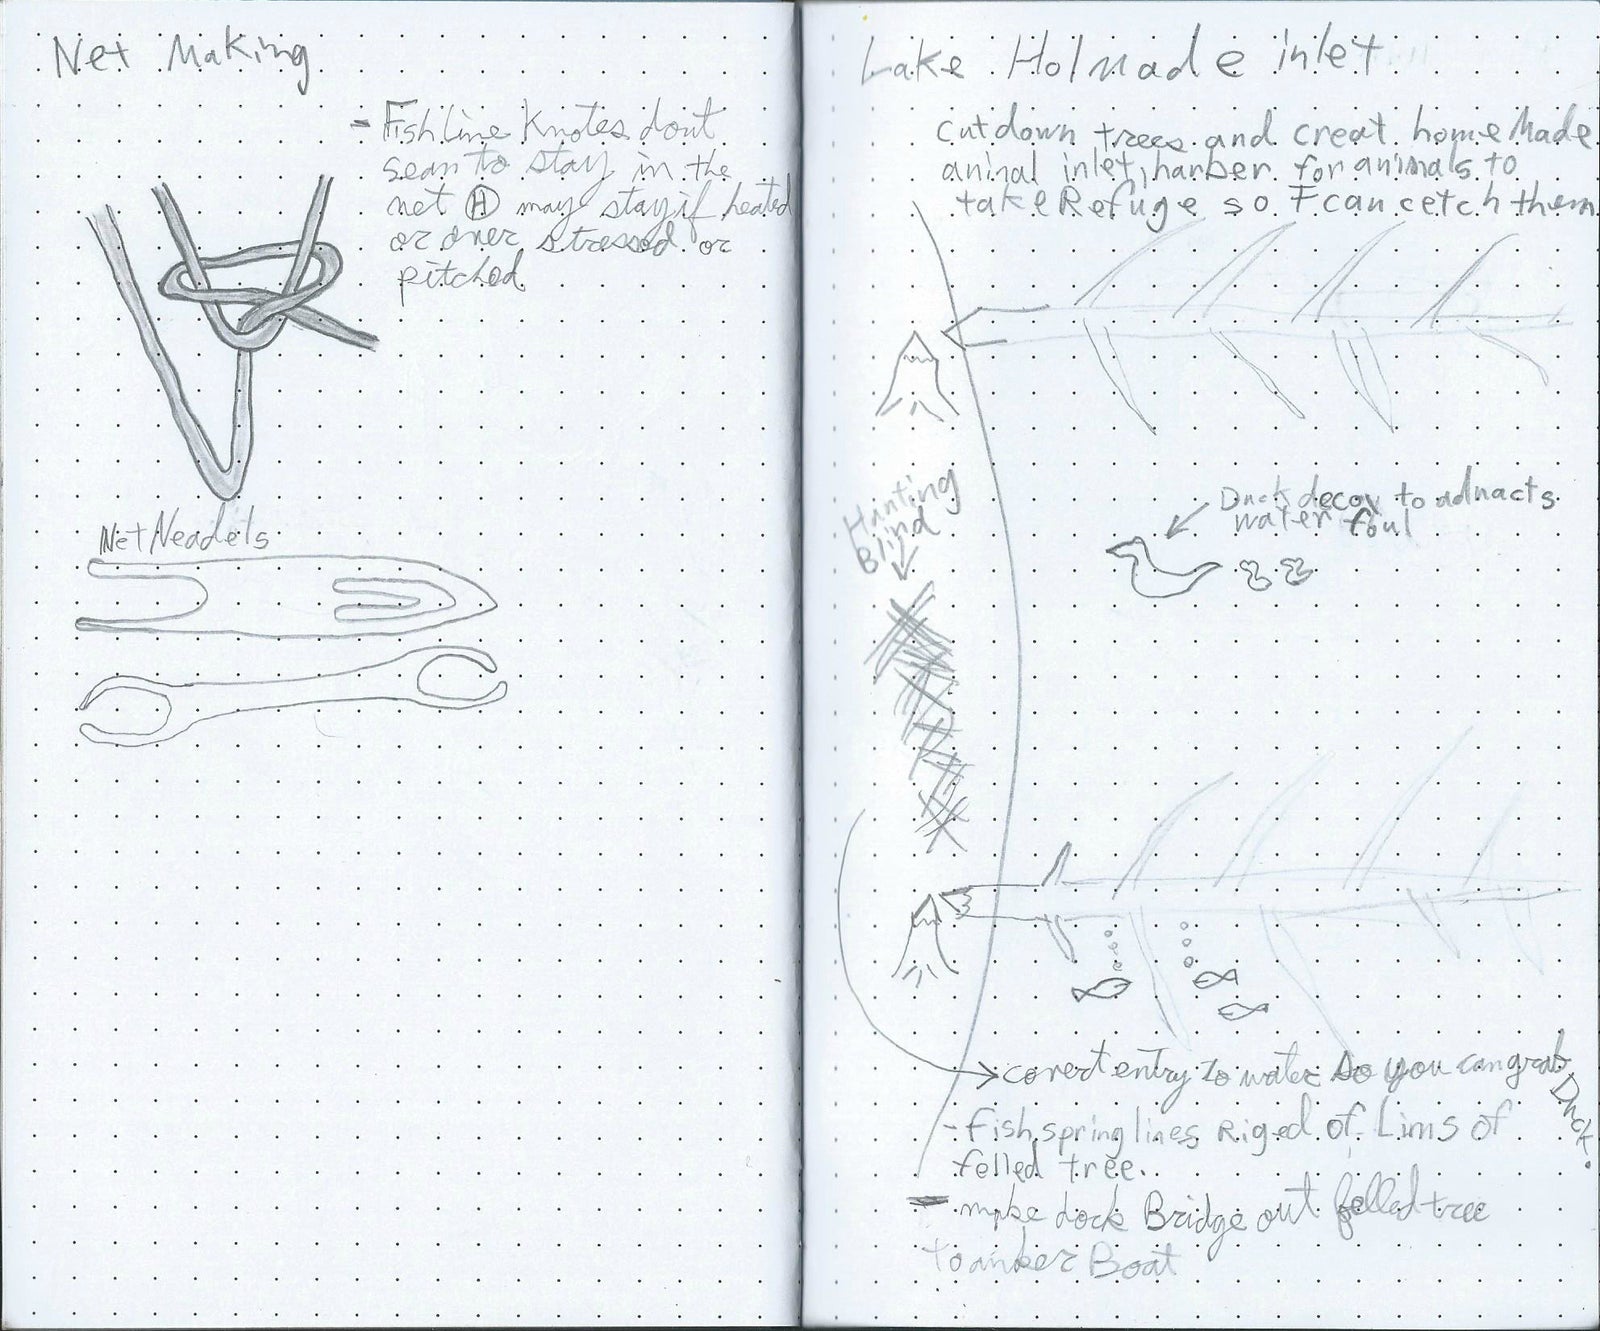 Net Making
- Fishline Knotes dont
seam to stay in the
net (H) may stay if heated
or over stressed or
pitched
Net Neadels
Lake Holmade inlet
cut down trees and creat home Made
animal inlet, harber for animals to
take Refuge so I can cetch them
Hunting
Blind
Duck decoy to adracts
water foul
covert entry to water so you can grab
Duck.
- Fish spring lines Riged of Lims of
felled tree.
- make dock Bridge out felled tree
to anker Boat